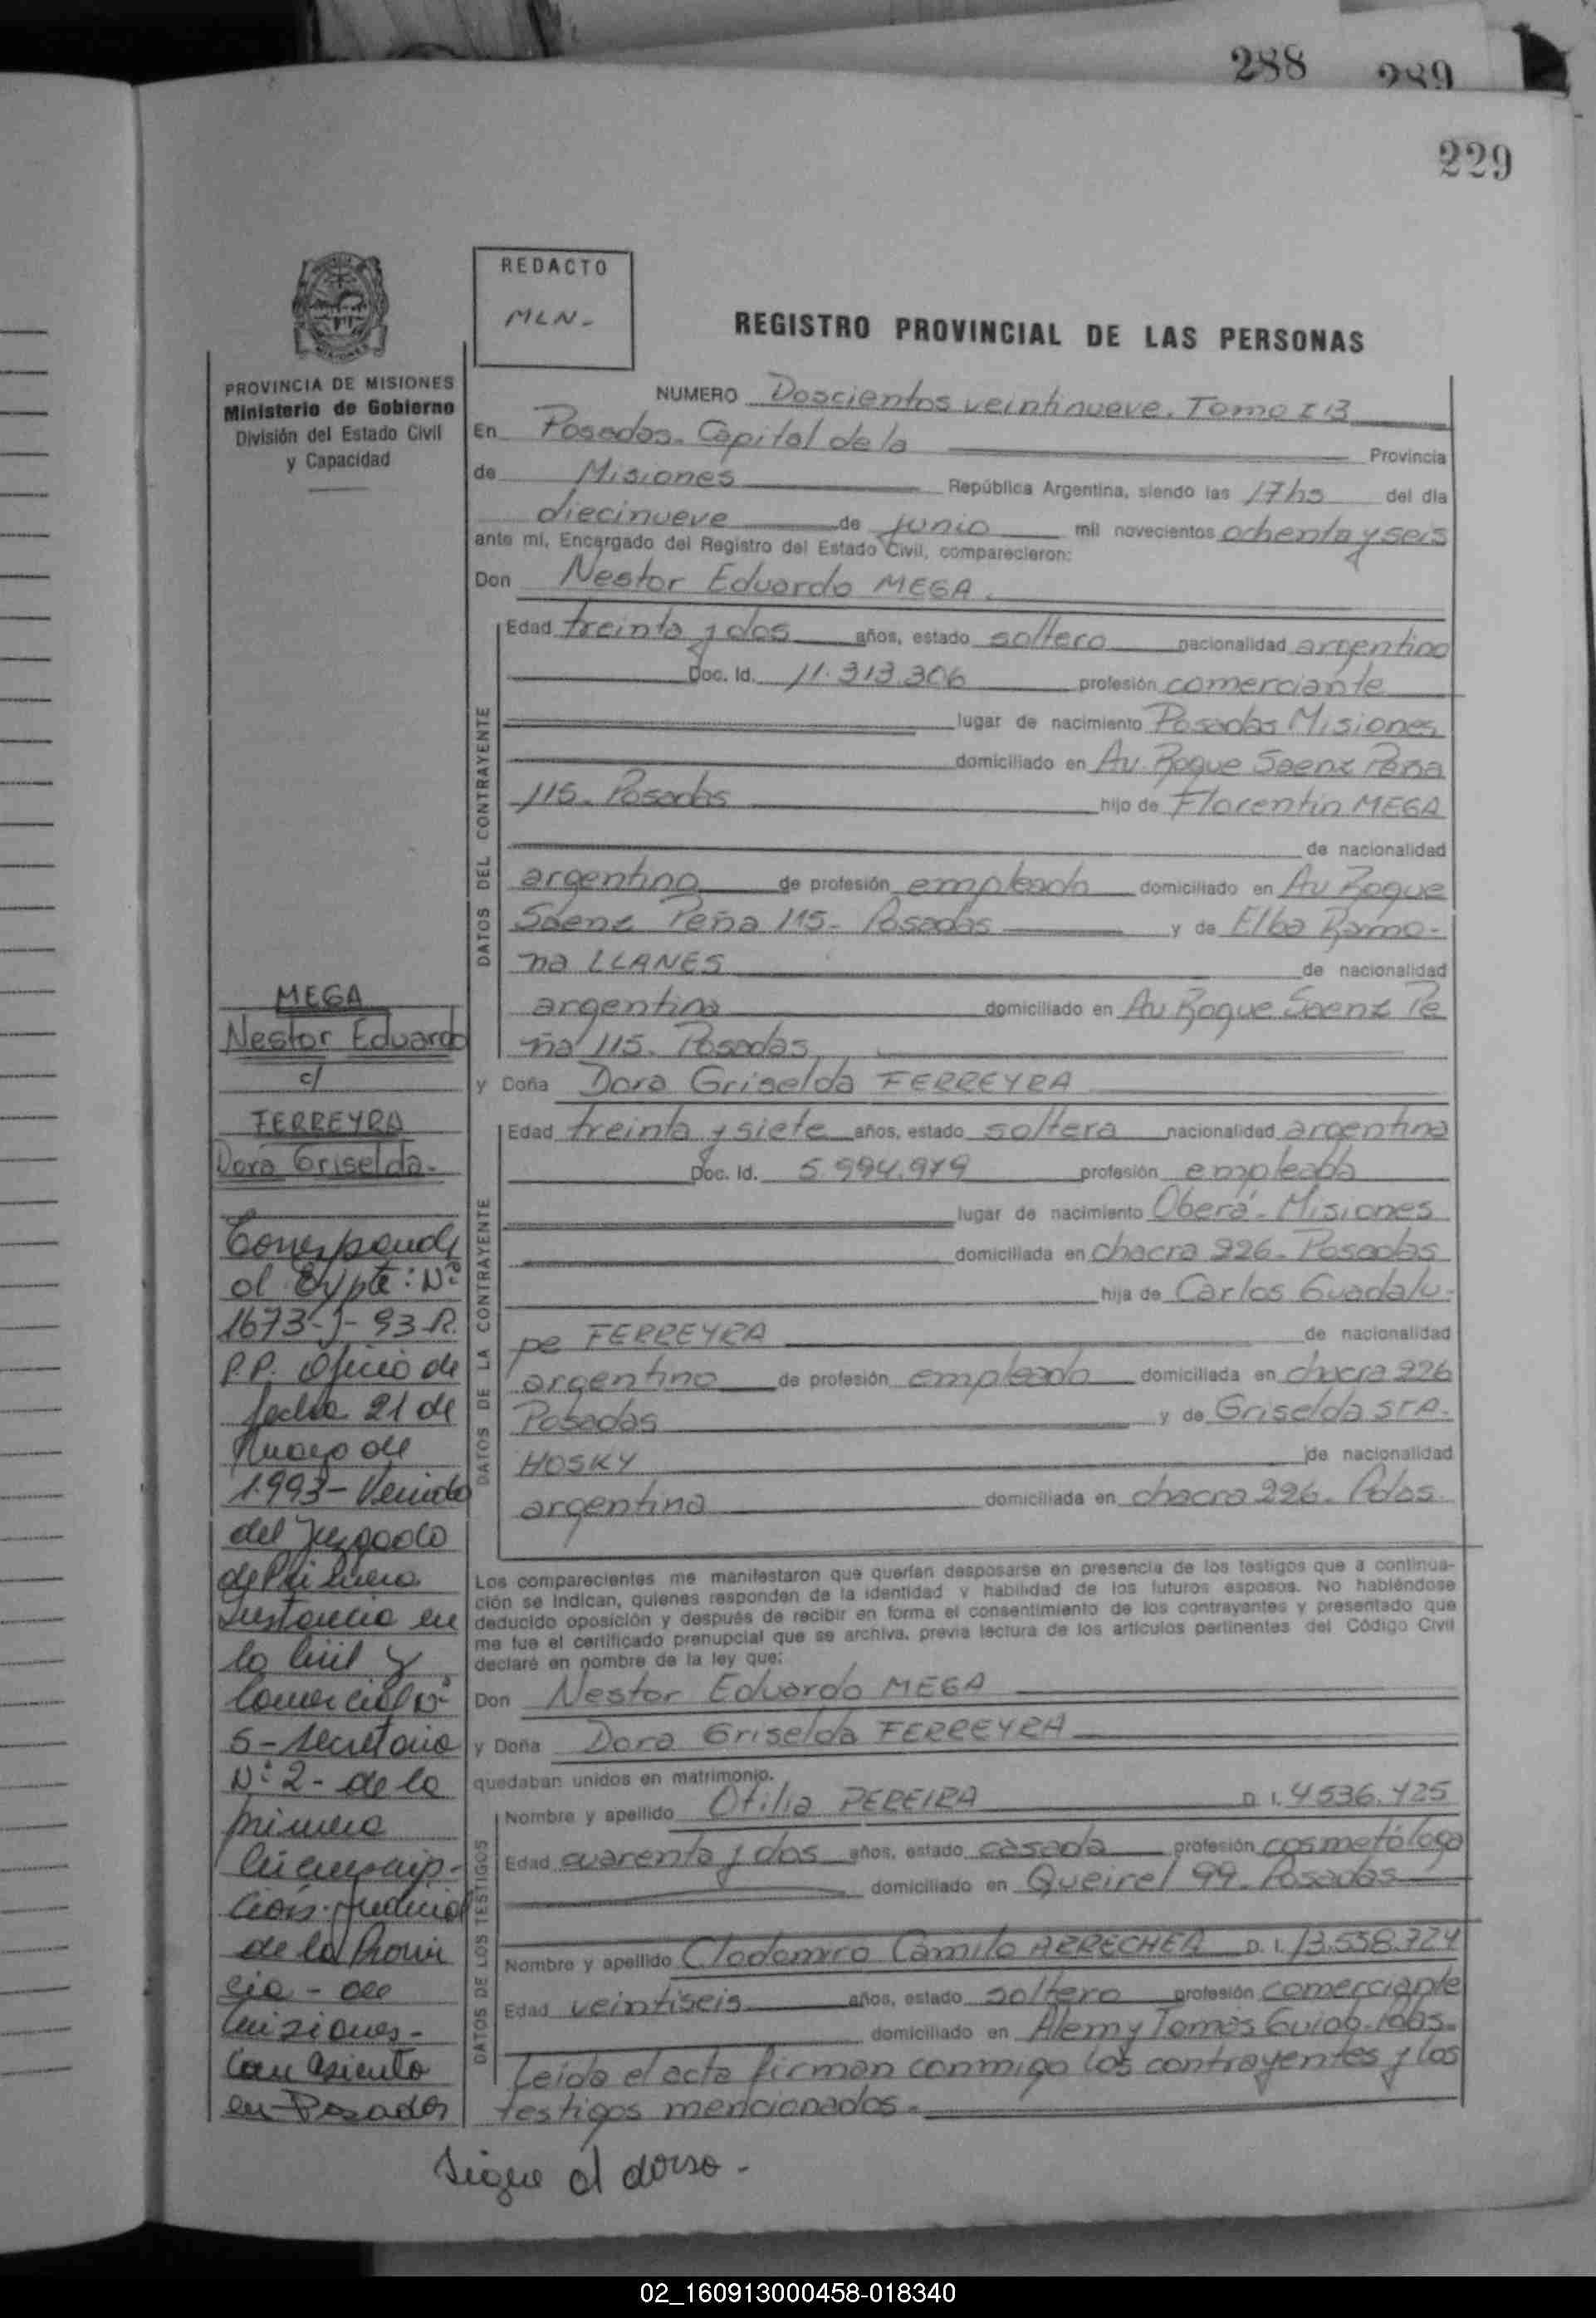 288 289
229
REDACTO
MLN-
REGISTRO PROVINCIAL DE LAS PERSONAS
PROVINCIA DE MISIONES
Ministerio de Gobierno
División del Estado Civil
y Capacidad
NUMERO Doscientos veintinueve. Tomo I B
En Posadas. Capital de la Provincia
de Misiones República Argentina, siendo las 17 hs del día
diecinueve de junio mil novecientos ochenta y seis
ante mí, Encargado del Registro del Estado Civil, comparecieron:
Don Nestor Eduardo MEGA.
DATOS DEL CONTRAYENTE
Edad treinta y dos años, estado soltero nacionalidad argentino
Doc. Id. 11.313.306 profesión comerciante
lugar de nacimiento Posadas Misiones
domiciliado en Av. Roque Saenz Peña
115. Posadas hijo de Florentin MEGA
de nacionalidad
argentino de profesión empleado domiciliado en Av Roque
Saenz Peña 115- Posadas y de Elba Ramo-
na LLANES de nacionalidad
argentina domiciliado en Av Roque Saenz Pe
ña 115. Posadas
y Doña Dora Griselda FERREYRA
DATOS DE LA CONTRAYENTE
Edad treinta y siete años, estado soltera nacionalidad argentina
Doc. Id. 5.994.979 profesión empleada
lugar de nacimiento Oberá- Misiones
domiciliada en chacra 226- Posadas
hija de Carlos Guadalu-
pe FERREYRA de nacionalidad
argentino de profesión empleado domiciliada en chacra 226
Posadas y de Griselda STA-
HOSKY de nacionalidad
argentina domiciliada en chacra 226. Pdas.
Los comparecientes me manifestaron que querían desposarse en presencia de los testigos que a continua-
ción se indican, quienes responden de la identidad y habilidad de los futuros esposos. No habiéndose
deducido oposición y después de recibir en forma el consentimiento de los contrayentes y presentado que
me fue el certificado prenupcial que se archiva, previa lectura de los artículos pertinentes del Código Civil
declaré en nombre de la ley que:
Don Nestor Eduardo MEGA
y Doña Dora Griselda FERREYRA
quedaban unidos en matrimonio.
DATOS DE LOS TESTIGOS
Nombre y apellido Otilia PEREIRA D. I. 4536.425
Edad cuarenta y dos años, estado casada profesión cosmetóloga
domiciliado en Queirel 99. Posadas
Nombre y apellido Clodomiro Camilo ARRECHEA D. I. 13.558.724
Edad veintiseis años, estado soltero profesión comerciante
domiciliado en Alem y Tomás
Leída el acta firman conmigo los contrayentes y los
testigos mencionados.
MEGA
Nestor Eduardo
c/
FERREYRA
Dora Griselda-
Corresponde
al Expte: Nº
1673-J-93-R.
P.P. Oficio de
fecha 21 de
de
1.993- Venido
del Juzgado
de Primera
Instancia en
lo Civil y
Comercial Nº
5- Secretaria
Nº 2- de la
primera
Circunscrip-
ción Judicial
de la Provin
cia - de
Misiones-
Con asiento
en Posadas
Sigue al dorso-
02_160913000458-018340